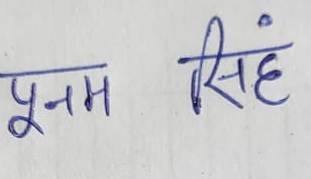 पूनम सिहं